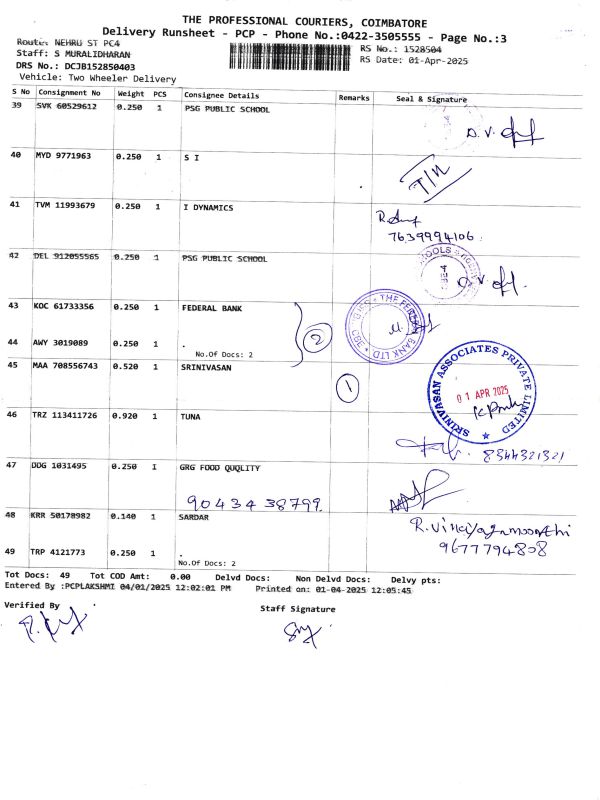 THE PROFESSIONAL COURIERS, COIMBATORE
Delivery Runsheet - PCP - Phone No.:0422-3505555 - Page No.:3
Route: NEHRU ST PC4
RS No.: 1528504
Staff: S MURALIDHARAN
RS Date: 01-Apr-2025
DRS No.: DCJB152850403
Vehicle: Two Wheeler Delivery
S No Consignment No Weight PCS Consignee Details Remarks Seal & Signature
39 SVK 60529612 0.250 1 PSG PUBLIC SCHOOL
40 MYD 9771963 0.250 1 S I
41 TVM 11993679 0.250 1 I DYNAMICS
7639994106
42 DEL 912055565 0.250 1 PSG PUBLIC SCHOOL
43 KOC 61733356 0.250 1 FEDERAL BANK
2
THE FEDERAL BANK LTD
44 AWY 3019089 0.250 1 .
No.Of Docs: 2
45 MAA 708556743 0.520 1 SRINIVASAN
1
SRINIVASAN ASSOCIATES PRIVATE LIMITED
01 APR 2025
46 TRZ 113411726 0.920 1 TUNA
8344321321
47 DDG 1031495 0.250 1 GRG FOOD QUQLITY
90434 38799
48 KRR 50178982 0.140 1 SARDAR
R. Vinayagamoorthi
9677794808
49 TRP 4121773 0.250 1 .
No.Of Docs: 2
Tot Docs: 49 Tot COD Amt: 0.00 Delvd Docs: Non Delvd Docs: Delvy pts:
Entered By :PCPLAKSHMI 04/01/2025 12:02:01 PM Printed on: 01-04-2025 12:05:45
Verified By Staff Signature